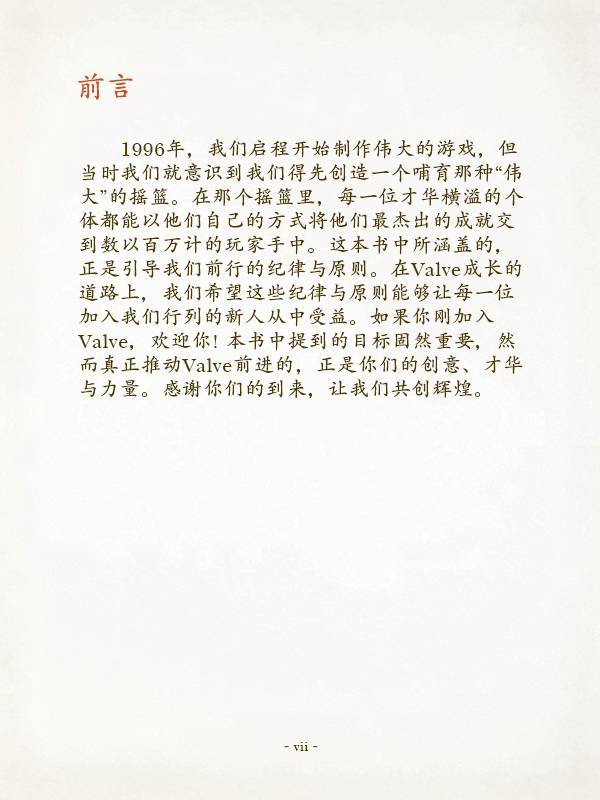 前言
1996年，我们启程开始制作伟大的游戏，但
当时我们就意识到我们得先创造一个哺育那种“伟
大”的摇篮。在那个摇篮里，每一位才华横溢的个
体都能以他们自己的方式将他们最杰出的成就交
到数以百万计的玩家手中。这本书中所涵盖的，
正是引导我们前行的纪律与原则。在Valve成长的
道路上，我们希望这些纪律与原则能够让每一位
加入我们行列的新人从中受益。如果你刚加入
Valve，欢迎你！本书中提到的目标固然重要，然
而真正推动Valve前进的，正是你们的创意、才华
与力量。感谢你们的到来，让我们共创辉煌。
- vii -